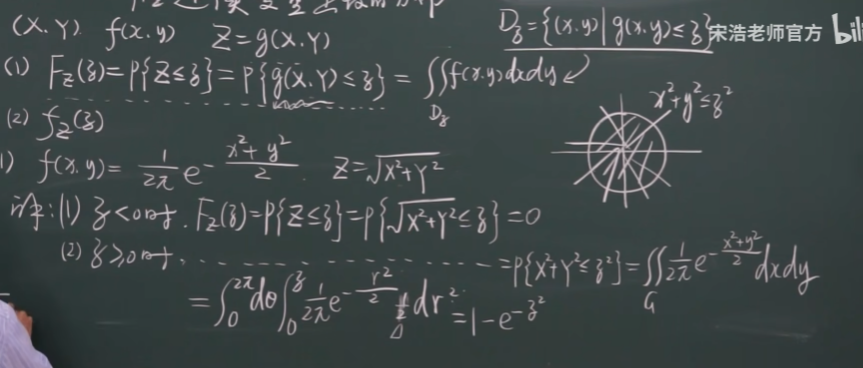 (X,Y) f(x,y) Z=g(X,Y) D_z={(x,y)|g(x,y)≤z}
宋浩老师官方 bili
(1) F_Z(z)=P{Z≤z}=P{g(X,Y)≤z}=∬_{D_z} f(x,y)dxdy
(2) f_Z(z)
x²+y²≤z²
1) f(x,y)=1/2π e^{-(x²+y²)/2} Z=√(X²+Y²)
解:(1) z<0时. F_Z(z)=P{Z≤z}=P{√(X²+Y²)≤z}=0
(2) z≥0时, - - - - - =P{X²+Y²≤z²}=∬_G 1/2π e^{-(x²+y²)/2} dxdy
=∫_0^{2π}dθ∫_0^z 1/2π e^{-r²/2} 1/2 dr²=1-e^{-z²}